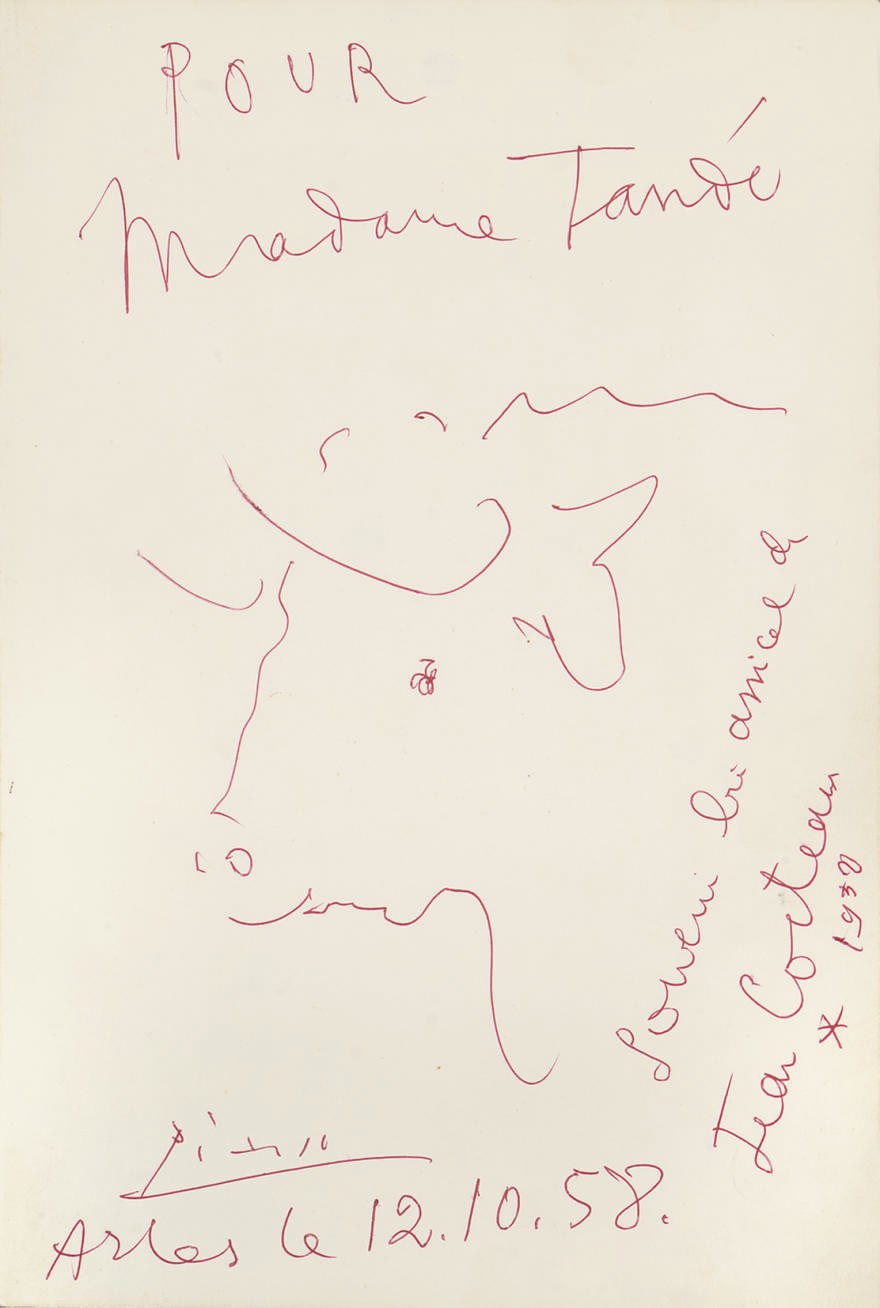 POUR
Madame Tandé
Souvenir très amical de
Jean Cocteau
* 1958
Picasso
Arles le 12.10.58.